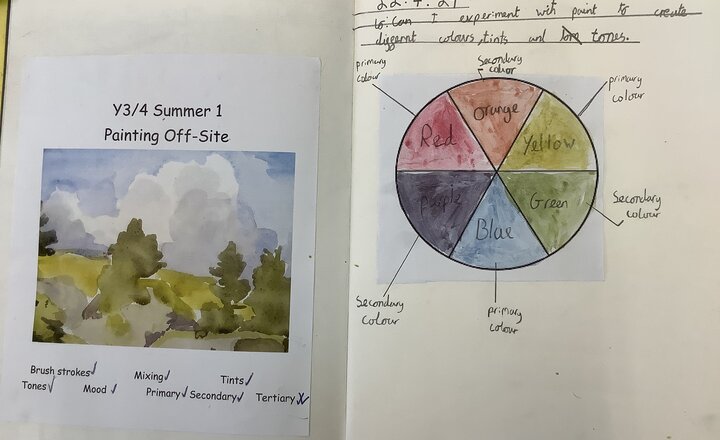 Y3/4 Summer 1
Painting Off-Site
Brush strokes Mixing Tints
Tones Mood Primary Secondary Tertiary
22.4.21
Lo: Can I experiment with paint to create
different colours, tints and tones.
primary
colour
Secondary
color
primary
colour
Red
Orange
Yellow
Purple
Blue
Green
Secondary
colour
Secondary
colour
primary
colour